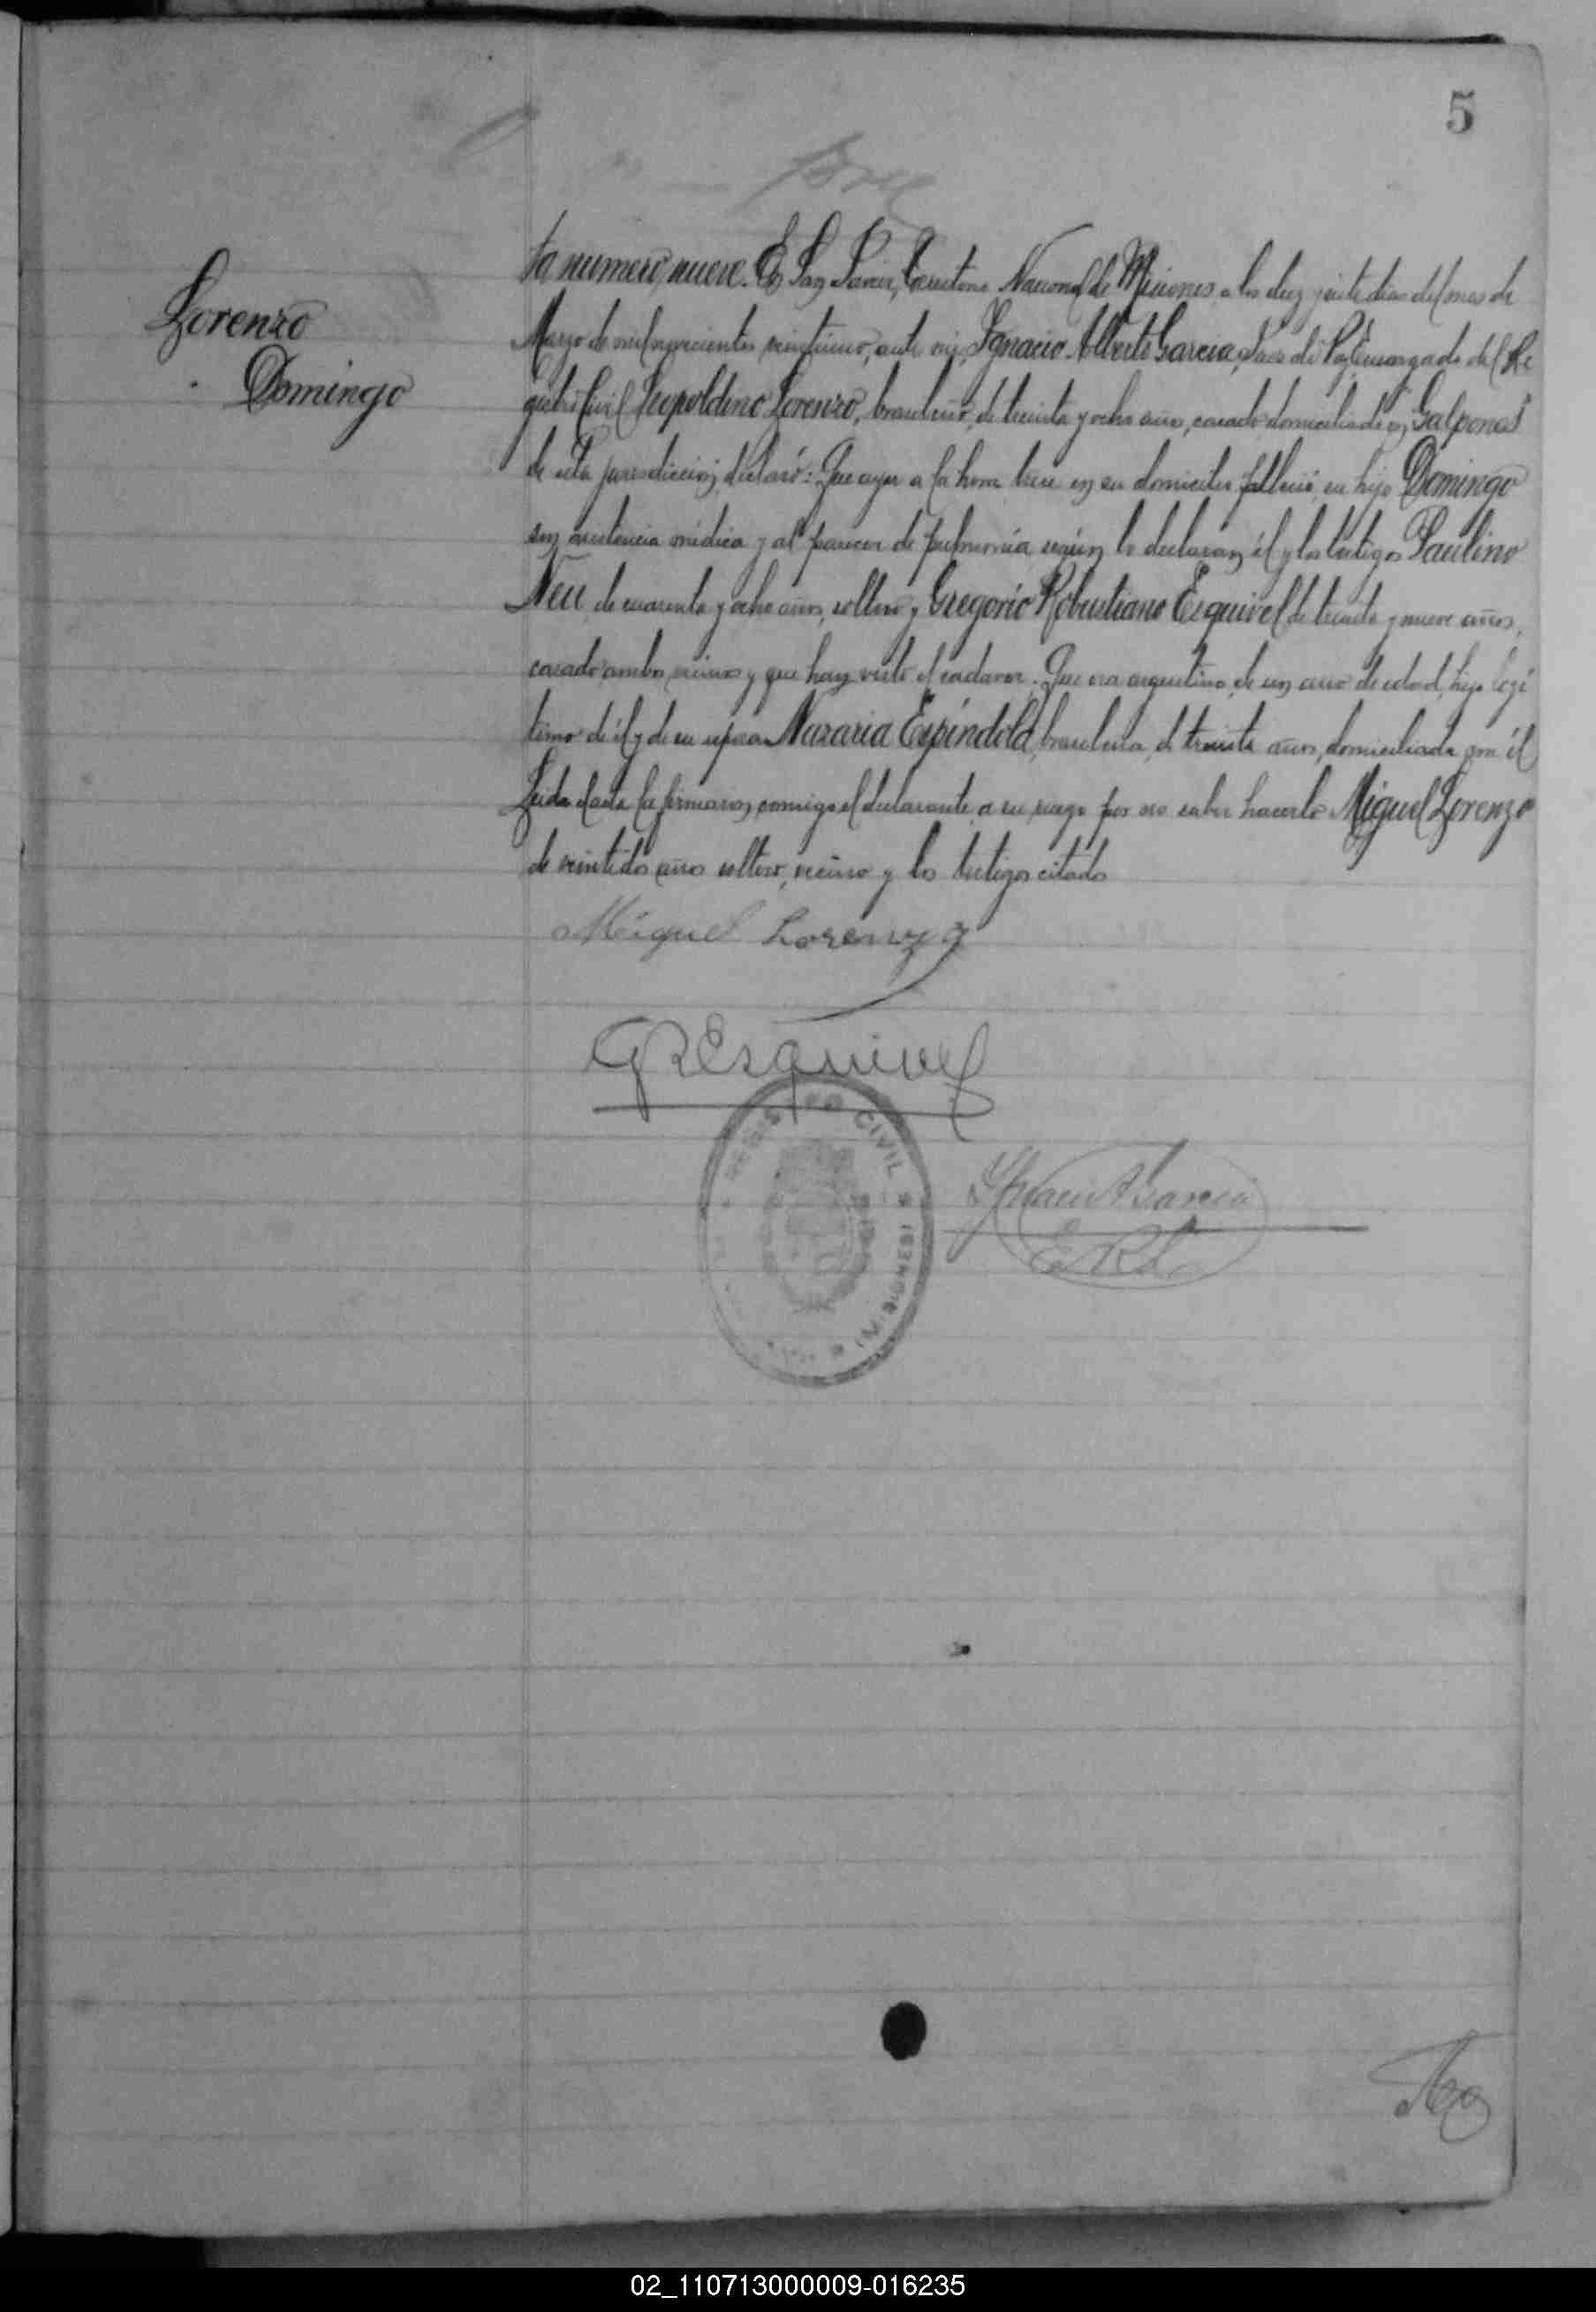 5
Lorenzo
Domingo
ta numero nueve. En San Javier, Territorio Nacional de Misiones a los diez y siete dias del mes de
Mayo de mil novecientos veintiuno, ante mi, Ignacio Alberto Garcia, Juez de Paz Encargado del Re
gistro Civil Leopoldino Lorenzo, brasileño, de treinta y ocho años, casado domiciliado en Galpones
de esta jurisdiccion, declaró: Que ayer a la hora trece en su domicilio falleció su hijo Domingo
sin asistencia médica y al parecer de pulmonía según lo declaran él y los testigos Paulino
Neu, de cuarenta y ocho años, soltero y Gregorio Robustiano Esquivel de treinta y nueve años,
casado ambos vecinos y que han visto el cadaver. Que era argentino, de un año de edad, hijo legi
timo de él y de su esposa Nazaria Espíndola, brasileña, de treinta años, domiciliada con él
Leida el acta la firmaron conmigo el declarante, a su ruego por no saber hacerlo Miguel Lorenzo
de veintidos años soltero, vecino y los testigos citados
Miguel Lorenzo
GREsquivel
REGISTRO CIVIL
(MISIONES)
Ignacio A Garcia
02_110713000009-016235